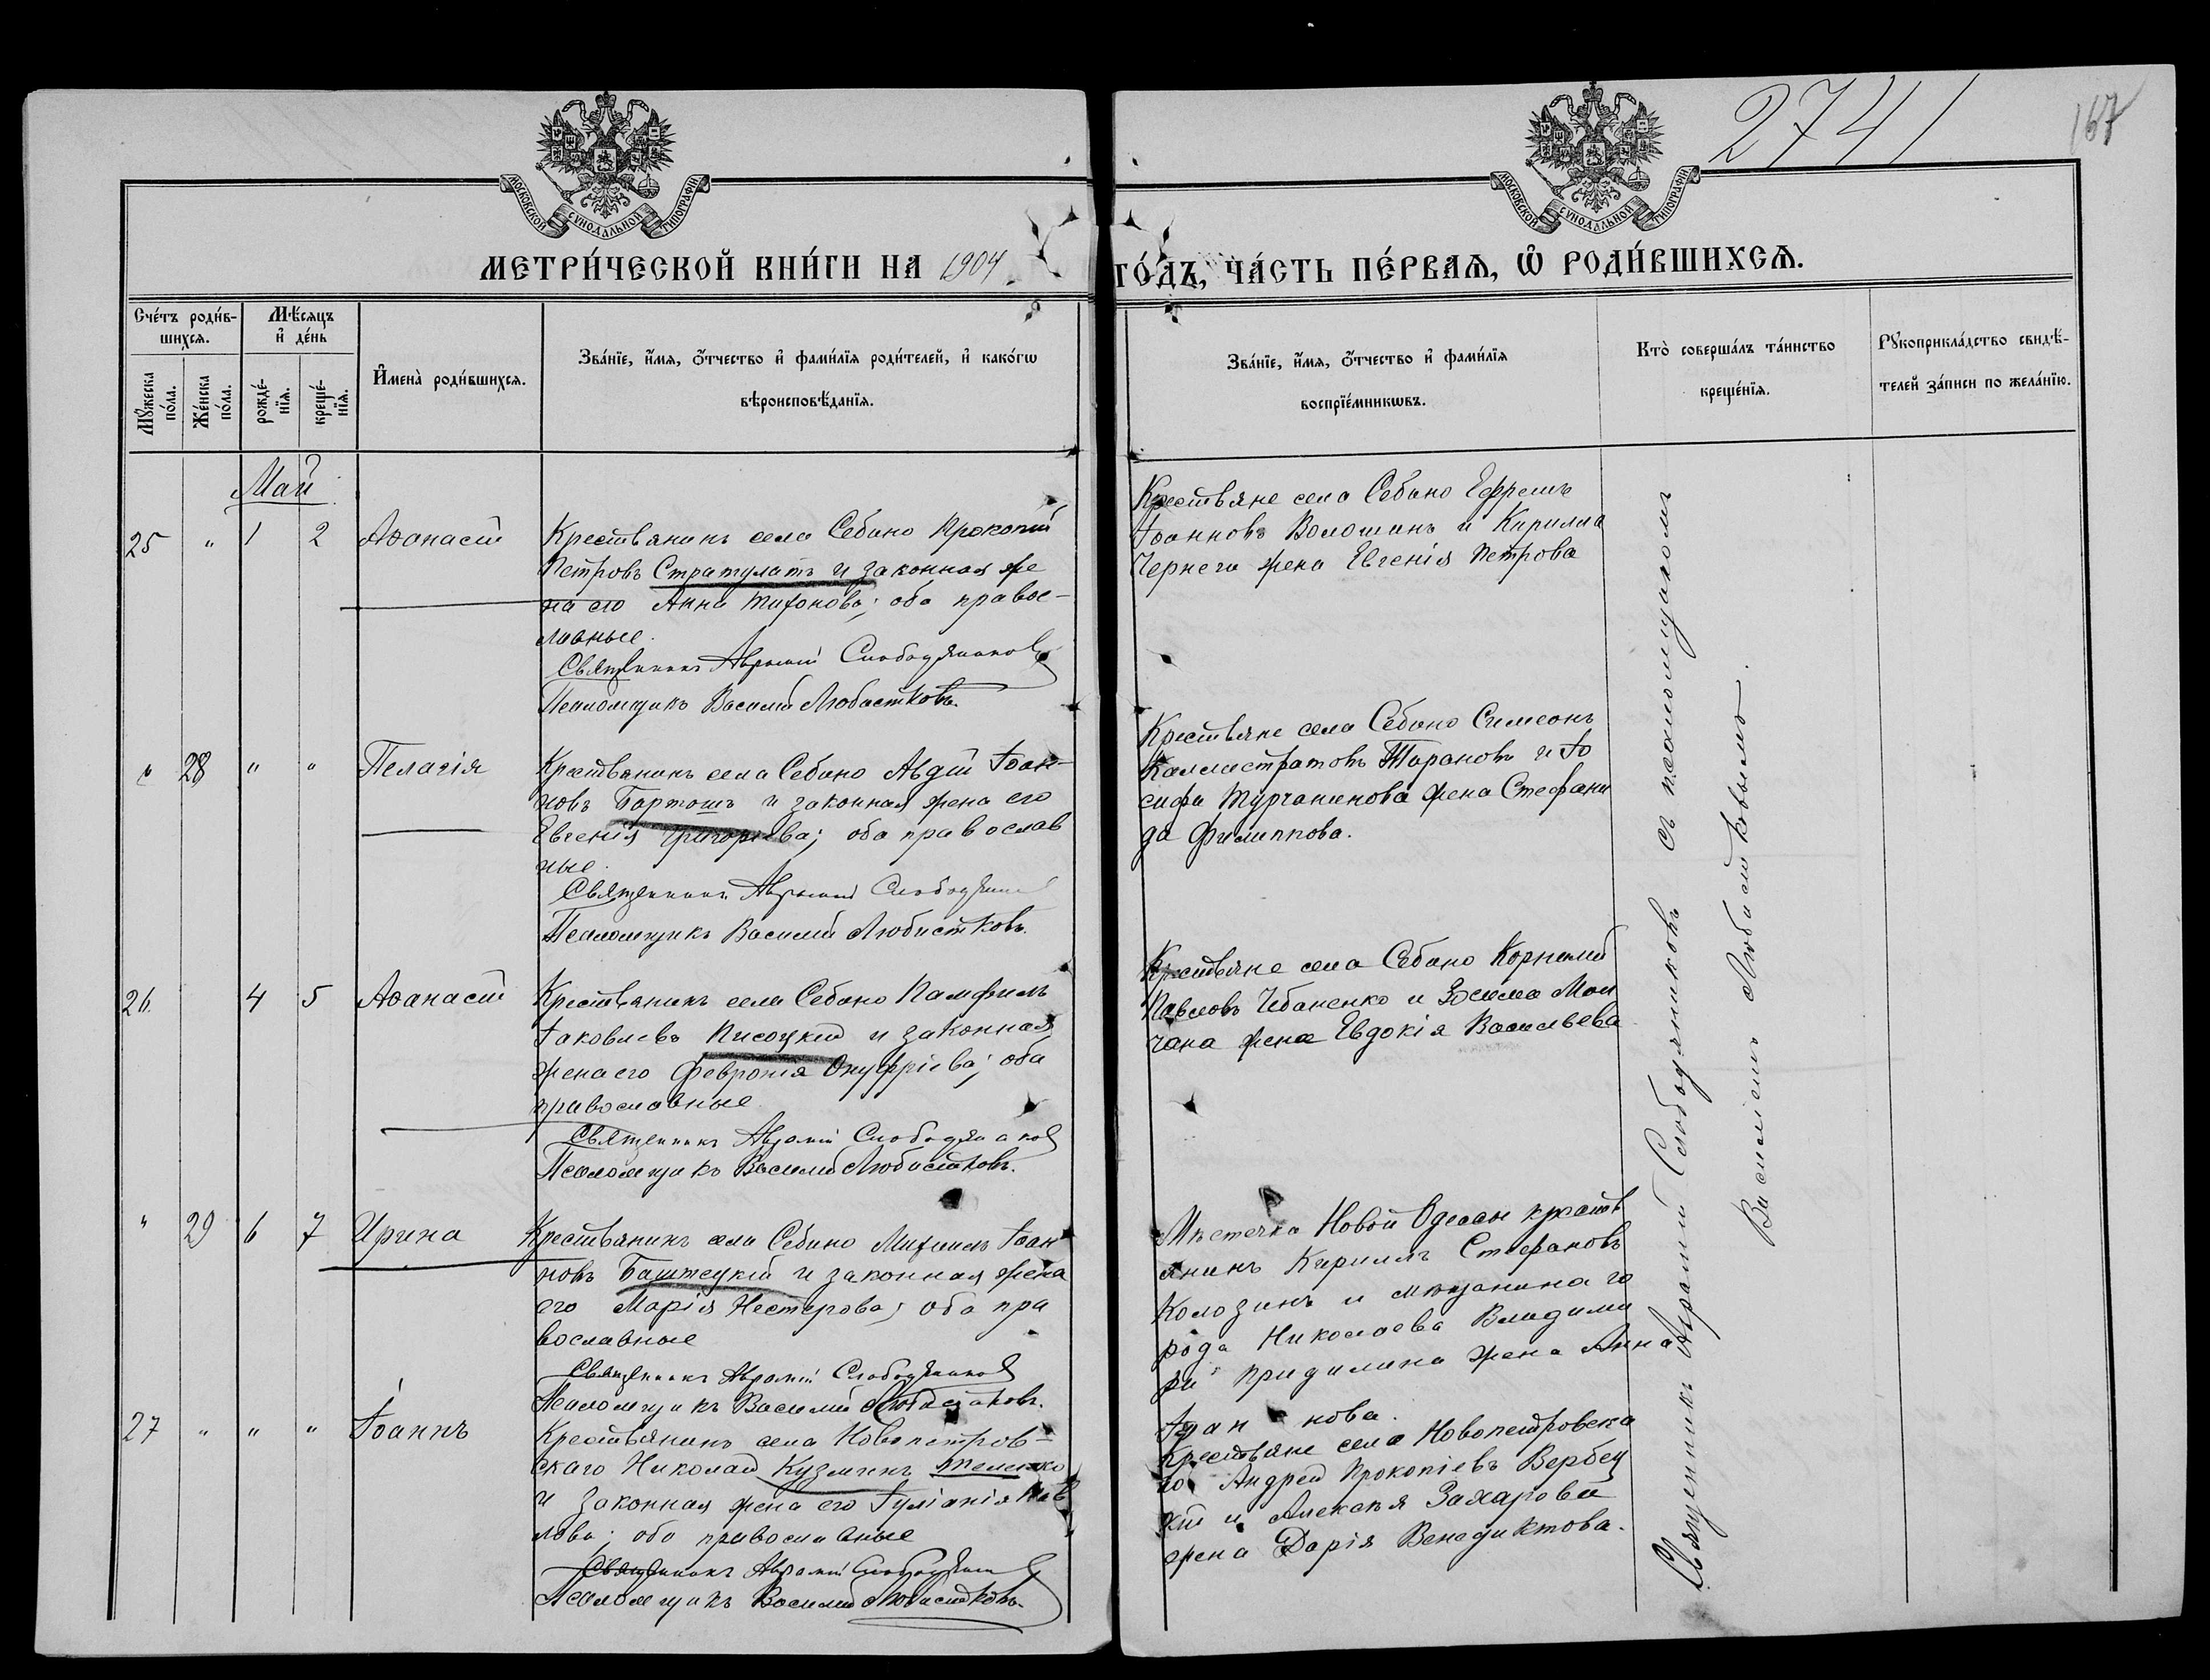 2741
167
МОСКОВСКОЙ СѴНОДАЛЬНОЙ ТИПОГРАФІИ
МОСКОВСКОЙ СѴНОДАЛЬНОЙ ТИПОГРАФІИ
МЕТРИ́ЧЕСКОЙ КНИ́ГИ НА 1904 ГО́ДЪ, ЧА́СТЬ ПЕ́РВАѦ, Ѡ҆ РОДИ́ВШИХСѦ.
Сче́тъ роди́в-
шихсѧ.
Мꙋ́жеска
по́ла.
Же́нска
по́ла.
Мѣ́сѧцъ
и҆ де́нь
рожде́-
нїѧ.
креще́-
нїѧ.
И҆мена̀ роди́вшихсѧ.
Зва́нїе, и҆́мѧ, ѻ҆́тчество и҆ фами́лїѧ роди́телей, и҆ како́гѡ
вѣроисповѣ́данїѧ.
Зва́нїе, и҆́мѧ, ѻ҆́тчество и҆ фами́лїѧ
воспрїе́мникѡвъ.
Кто̀ соверша́лъ та́инство
креще́нїѧ.
Рꙋкоприкла́дство свидѣ́-
телей за́писи по жела́нїю.
Май
25 " 1 2 Аѳанасій
Крестьянинъ села Себино Прокопій
Петровъ Стратулатъ и законная же
на его Анна Тихонова; оба правос-
лавные.
Священникъ Аврамій Слободяников
Псаломщикъ Василій Любистковъ.
Крестьяне села Себино Ефремъ
Іоанновъ Волошинъ и Кирилла
Чернега жена Евгенія Петрова
" 28 " " Пелагія
Крестьянинъ села Себино Авдій Іоан-
новъ Бартошъ и законная жена его
Евгенія Григорьева; оба православ
ные.
Священникъ Аврамій
Псаломщикъ Василій Любистковъ.
Крестьяне села Себино Симеонъ
Каллистратовъ Тарановъ и Іо
сифа Турчанинова жена Стефани
да Филиппова.
26. 4 5 Аѳанасій
Крестьянинъ села Себино Памфилъ
Іаковлевъ Писоцкій и законная
жена его Февронія Онуфріева; оба
православные
Священникъ Аврамій Слободяников
Псаломщикъ Василій Любистковъ.
Крестьяне села Себино Корнилій
Павловъ Чебаненко и Зосима Мол
чана жена Евдокія Васильева
" 29 6 7 Ирина
Крестьянинъ села Себино Михаилъ Іоан
новъ Баштецкій и законная жена
его Марія Нестерова; оба пра
вославные
Священникъ Аврамій Слободяников
Псаломщикъ Василій Любистковъ.
Мѣстечка Новой Одессы крестьъ
янинъ Кириллъ Стефановъ
Колозинъ и мѣщанина го
рода Николаева Владими
ра Придилина жена Анна
Іоан нова.
27 " " " Іоаннъ
Крестьянинъ села Новопетров-
скаго Николай Кузминъ Теленко
и законная жена его Іуліанія Пав
лова; оба православные
Священникъ Аврамій
Псаломщикъ Василій Любистковъ.
Крестьяне села Новопетровска
го Андрей Прокопіевъ Вербец
кій и Алексѣя Захарова
жена Дарія Венедиктова.
Священникъ Аврамій Слободяниковъ съ псаломщикомъ
Василіемъ Любистковымъ.